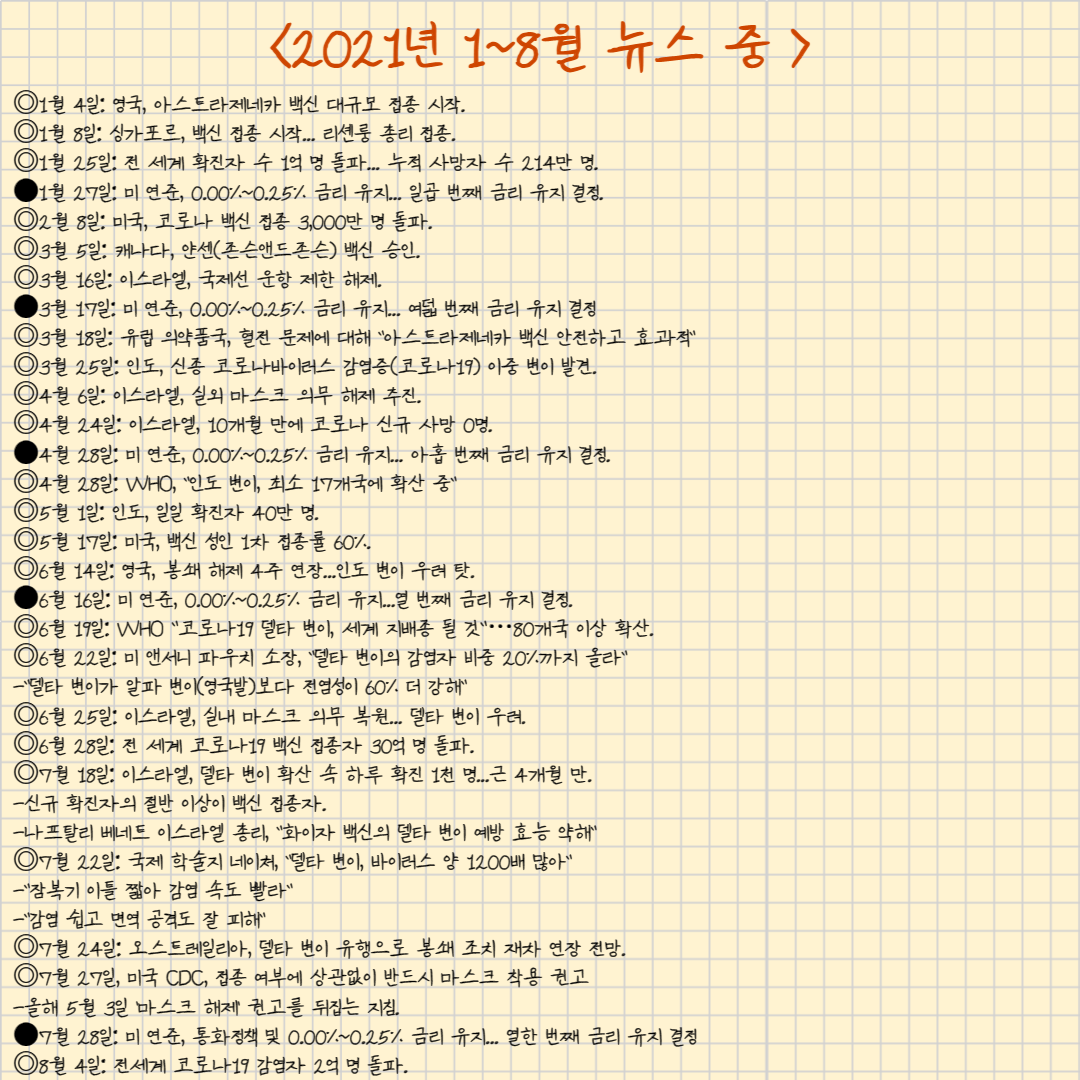 <2021년 1~8월 뉴스 중 >
◎1월 4일: 영국, 아스트라제네카 백신 대규모 접종 시작.
◎1월 8일: 싱가포르, 백신 접종 시작... 리셴룽 총리 접종.
◎1월 25일: 전 세계 확진자 수 1억 명 돌파... 누적 사망자 수 214만 명.
●1월 27일: 미 연준, 0.00%~0.25% 금리 유지... 일곱 번째 금리 유지 결정.
◎2월 8일: 미국, 코로나 백신 접종 3,000만 명 돌파.
◎3월 5일: 캐나다, 얀센(존슨앤드존슨) 백신 승인.
◎3월 16일: 이스라엘, 국제선 운항 제한 해제.
●3월 17일: 미 연준, 0.00%~0.25% 금리 유지... 여덟 번째 금리 유지 결정
◎3월 18일: 유럽 의약품국, 혈전 문제에 대해 "아스트라제네카 백신 안전하고 효과적"
◎3월 25일: 인도, 신종 코로나바이러스 감염증(코로나19) 이중 변이 발견.
◎4월 6일: 이스라엘, 실외 마스크 의무 해제 추진.
◎4월 24일: 이스라엘, 10개월 만에 코로나 신규 사망 0명.
●4월 28일: 미 연준, 0.00%~0.25% 금리 유지... 아홉 번째 금리 유지 결정.
◎4월 28일: WHO, "인도 변이, 최소 17개국에 확산 중"
◎5월 1일: 인도, 일일 확진자 40만 명.
◎5월 17일: 미국, 백신 성인 1차 접종률 60%.
◎6월 14일: 영국, 봉쇄 해제 4주 연장...인도 변이 우려 탓.
●6월 16일: 미 연준, 0.00%~0.25% 금리 유지...열 번째 금리 유지 결정.
◎6월 19일: WHO "코로나19 델타 변이, 세계 지배종 될 것"···80개국 이상 확산.
◎6월 22일: 미 앤서니 파우치 소장, "델타 변이의 감염자 비중 20%까지 올라"
-"델타 변이가 알파 변이(영국발)보다 전염성이 60% 더 강해"
◎6월 25일: 이스라엘, 실내 마스크 의무 복원... 델타 변이 우려.
◎6월 28일: 전 세계 코로나19 백신 접종자 30억 명 돌파.
◎7월 18일: 이스라엘, 델타 변이 확산 속 하루 확진 1천 명...근 4개월 만.
-신규 확진자의 절반 이상이 백신 접종자.
-나프탈리 베네트 이스라엘 총리, "화이자 백신의 델타 변이 예방 효능 약해"
◎7월 22일: 국제 학술지 네이처, "델타 변이, 바이러스 양 1200배 많아"
-"잠복기 이틀 짧아 감염 속도 빨라"
-"감염 쉽고 면역 공격도 잘 피해"
◎7월 24일: 오스트레일리아, 델타 변이 유행으로 봉쇄 조치 재차 연장 전망.
◎7월 27일, 미국 CDC, 접종 여부에 상관없이 반드시 마스크 착용 권고
-올해 5월 3일 '마스크 해제' 권고를 뒤집는 지침.
●7월 28일: 미 연준, 통화정책 및 0.00%~0.25% 금리 유지... 열한 번째 금리 유지 결정
◎8월 4일: 전세계 코로나19 감염자 2억 명 돌파.